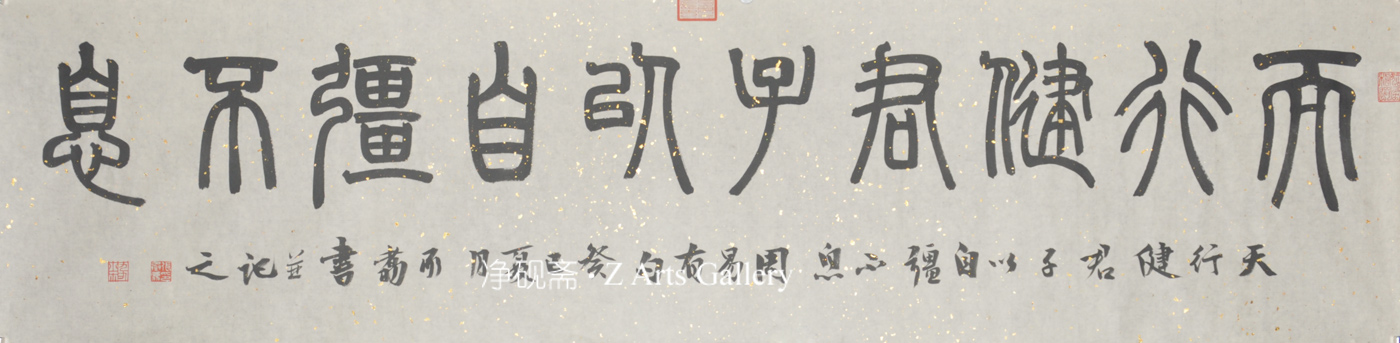 天行健君子以自彊不息
天行健君子以自彊不息周易有句癸巳夏月而翥書並記之
净砚斋 · Z Arts Gallery